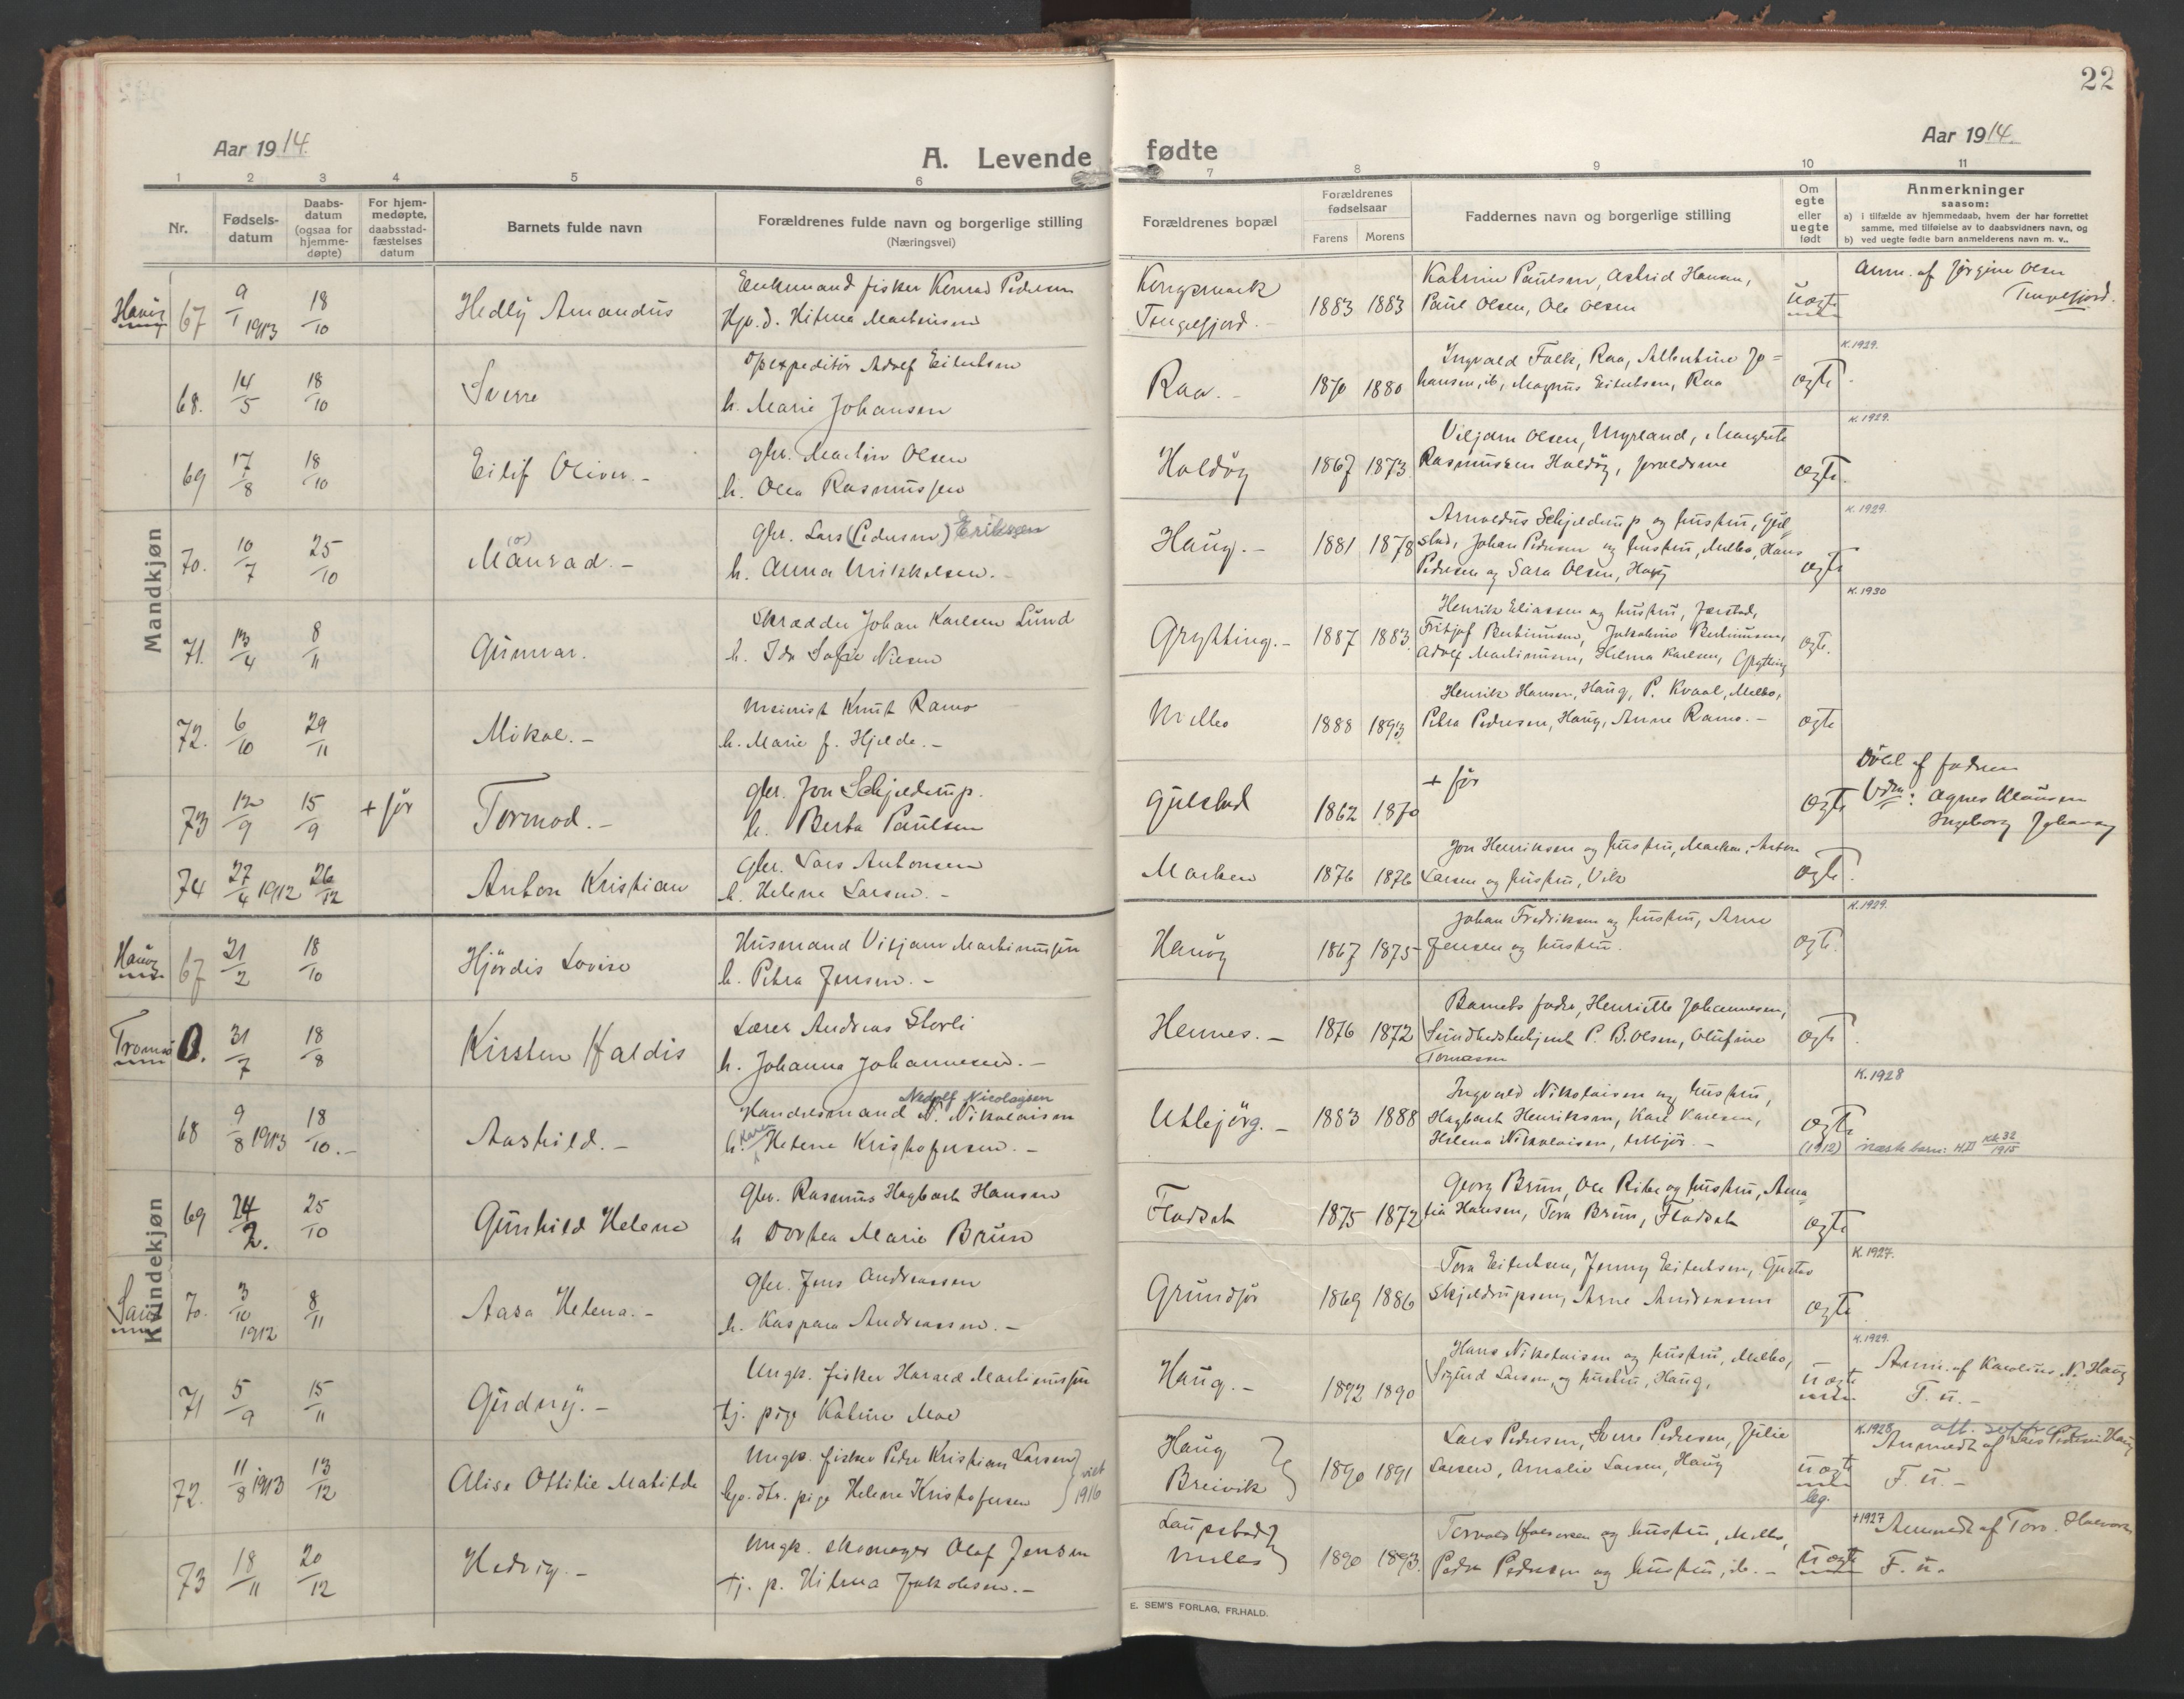 22
Aar 1914.
A. Levende fødte
Aar 1914.
1 2 3 4 5 6 7 8 9 10 11
Nr.
Fødsels-
datum
Daabs-
datum
(ogsaa for
hjemme-
døpte)
For hjem-
medøpte,
daabsstad-
fæstelses
datum
Barnets fulde navn
Forældrenes fulde navn og borgerlige stilling
(Næringsvei)
Forældrenes bopæl
Forældrenes
fødselsaar
Farens Morens
Faddernes navn og borgerlige stilling
Om
egte
eller
uegte
født
Anmerkninger
saasom:
a) i tilfælde av hjemmedaab, hvem der har forrettet
samme, med tilføielse av to daabsvidners navn, og
b) ved uegte fødte barn anmelderens navn m. v..
Mandkjøn
67 9/1 1913 18/10 Hedly Amandus
Enkemand fisker Konrad Pedersen
Hjv. d. Hilma Martinsen
Kongsmark
Tengelfjord.
1883 1883
Katrine Paulsen, Astrid Hansen,
Paul Olsen, Ole Olsen
uægte
Anm. af Jørgine Olsen
Tengelfjord.
68. 14/5 18/10 Sverre
Opexpeditør Adolf Eilertsen
h. Marie Johansen
Raa.-
1870 1880
Ingvald Falk, Raa, Albertine Jo=
hansen, ib, Magnus Eilertsen, Raa
ægte.
K.1929.
69 17/8 18/10 Eilif Oliver.-
gbr. Martin Olsen
h. Olea Rasmussen
Holdøy
1867 1873.
Viljam Olsen, Myrland, Margrete
Rasmussen Holdøy, forældrene
ægte.
K.1929.
70. 10/7 25/10 Månrad.- (o)
Gbr. Lars (Pedersen) Eriksen
h. Anna Mikkelsen.-
Haug.-
1881 1878
Arnoldus Schjelderup og hustru, Gul-
stad, Johan Pedersen og hustru, Melbo, Hans
Pedersen og Sara Olsen, Haug
ægte
K.1929.
71. 13/4 8/11 Gunvar.
Skrædder Johan Karlsen Lund
h. Ida Sofie Nilsen
Grytting.-
1887 1883.
Henrik Eliassen og hustru, Jørstad,
Fritjof Bertinussen, Jakobine Bertinussen,
Adolf Martinussen, Helma Karlsen, Grytting
ægte.
K.1930
72. 6/10 29/11 Mikal.-
Meierist Knut Ramo
h. Marie f. Hjelde.-
Melbo
1888 1893.
Henrik Hansen, Haug, P. Kvaal, Melbo,
Petra Pedersen, Haug, Anne Ramo.-
ægte
73 12/9 15/9 + før Tormod.-
gbr. Jon Schjelderup.
h. Berta Paulsen
Gulstad
1862 1870
+ før
ægte
Døbt af fadren
Vidn: Agnes Klausen
Ingeborg
74 27/4 1912 26/12 Anton Kristian
Gbr. Lars Antonsen
h. Helene Larsen.-
Marken
1876 1876
Jon Henriksen og hustru, Marken, Anton
Larsen og hustru, Vik
ægte.
Kvindekjøn
67 21/2 18/10 Hjørdis Lovise
Husmand Viljam Martinussen
h. Petra Jensen.-
Hanøy
1867 1875
Johan Fredriksen og hustru, Arne
Jensen og hustru.
ægte.
K.1929.
Tromsø
0. 31/7 18/8 Kirsten Haldis
Lærer Andreas Storli
h. Johanna Johannesen.-
Hennes.-
1876 1872
Barnets fadre, Henriette Johannesen,
Sundhedsbetjent P. B. Olsen, Olufine
Tomassen
ægte.
68 9/8 1913 18/10.- Aashild.-
Nedolf Nicolaysen
Handelsmand N. Nikolaisen
h. Karen Helene Kristofersen.-
Utbjørg.-
1883 1888
Ingvald Nikolaisen og hustru,
Hagbart Henriksen, Karl Karlsen,
Helena Nikolaisen, Utbjør.-
ægte
(1912)
K.1928
næste barn: H.D kk 32/1915
69 24/2. 25/10 Gunhild Helene
Gbr. Rasmus Hagbart Hansen
h Dorthea Marie Brun
Fladsæt
1875 1872
Georg Brun, Ole Ribe og hustru, Ama-
lia Hansen, Tora Brun, Fladsæt
ægte
70. 3/10 1912 8/11 Aasa Helena.-
Gbr. Jens Andreassen
h. Kaspara Andreassen.-
Grundfør
1869 1886
Tora Eilertsen, Jenny Eilertsen, Gustav
Skjeldrupsen, Arne Andreassen
ægte
K.1927.
71 5/9 15/11 Gudny.-
Ungk. fisker Harald Martinussen
tj. pige Katrine Moe
Haug.-
1892 1890
Hans Nikolaisen og hustru, Melbo,
Sigurd Larsen, og hustru, Haug,
uægte
K.1929.
Anm. af Karolius N. Haug
F. u.-
72. 11/8 1913 13/12 Alise Ottilie Matilde
Ungk. fisker Peder Kristian Larsen
hjv. dtr. pige Helene Kristofersen
viet
1916
Haug
Breivik
1890 1891
Lars Pedersen, Sverre Pedersen, Julie
Larsen, Amalie Larsen, Haug
uægte
leg.
K.1928
Anmeldt af Lars Pedersen Haug
F. u.-
73 18/11 20/12 Hedvig.-
Ungk. skomager Olaf Jensen
tj. p. Hilma Jakobsen.-
Laupstad
Melbo
1890 1893.
Torvald Halvorsen og hustru, Melbo,
Peder Pedersen og hustru, ib.-
uægte
+1927
Anmeldt af Torv. Halvorsen
F. u.
E. SEM'S FORLAG, FR.HALD.